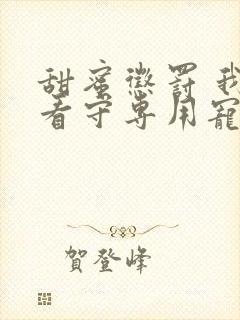 甜蜜懲罰我
看守專用寵
賀登峰